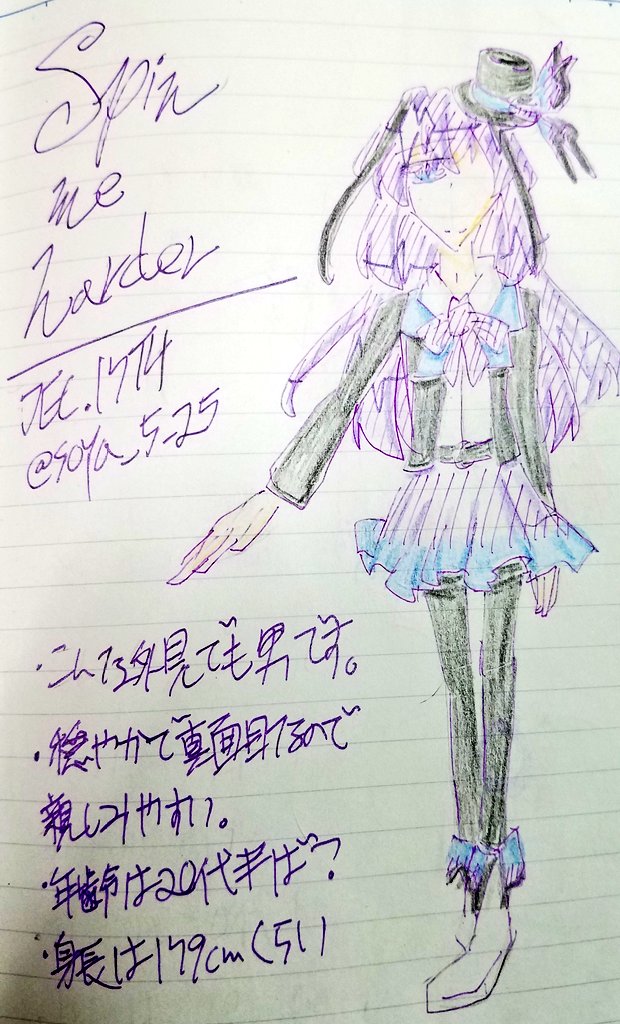 Spin
me
harder
JEC.1774
@soya_5_25
・こんな外見でも男です。
・穏やかで真面目なので
親しみやすい。
・年齢は20代半ば？
・身長は179cmくらい